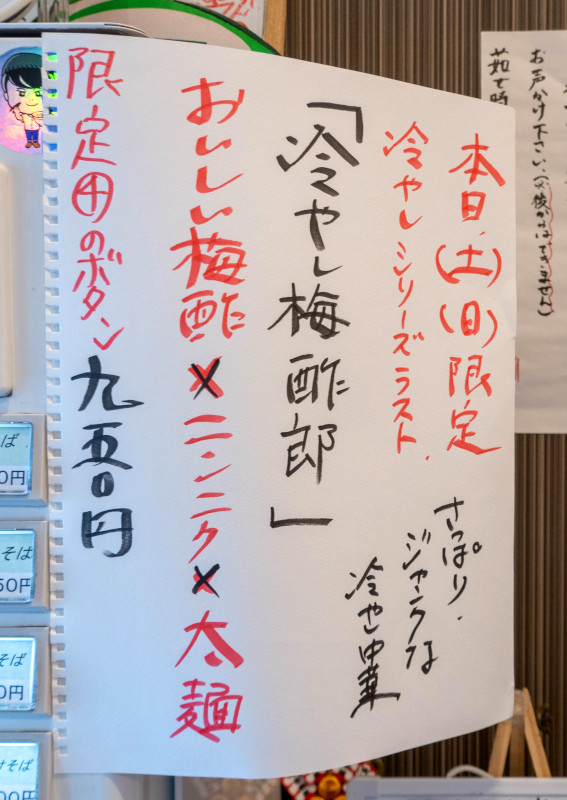 本日(土)(日)限定
冷やしシリーズラスト.
さっぱり.
ジャンクな
冷やし中華
「冷やし梅酢郎」
おいしい梅酢×ニンニク×太麺
限定田のボタン 九五〇円
お声かけ下さい、(又後からはできません)
茹で時
ば
0円
そば
50円
そば
0円
けそば
00円